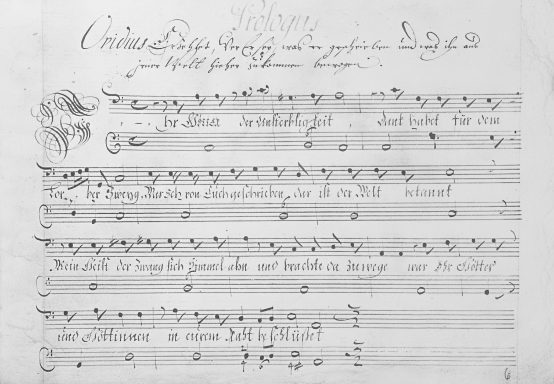 Prologus
Ovidius Erzehlet, der Er sey, was er geschrieben und was ihn aus
jener Welt hieher zukommen bewogen.
Ihr Götter der Unsterbligkeit, danck habet für dem
Lor ber Zweyg, Was ich von Euch geschrieben, das ist der Welt bekannt
Mein Geist der zwang sich Himmel ahn und brachte da zu wege was Ihr Götter
und Göttinnen in eurem Raht beschlüsset
6